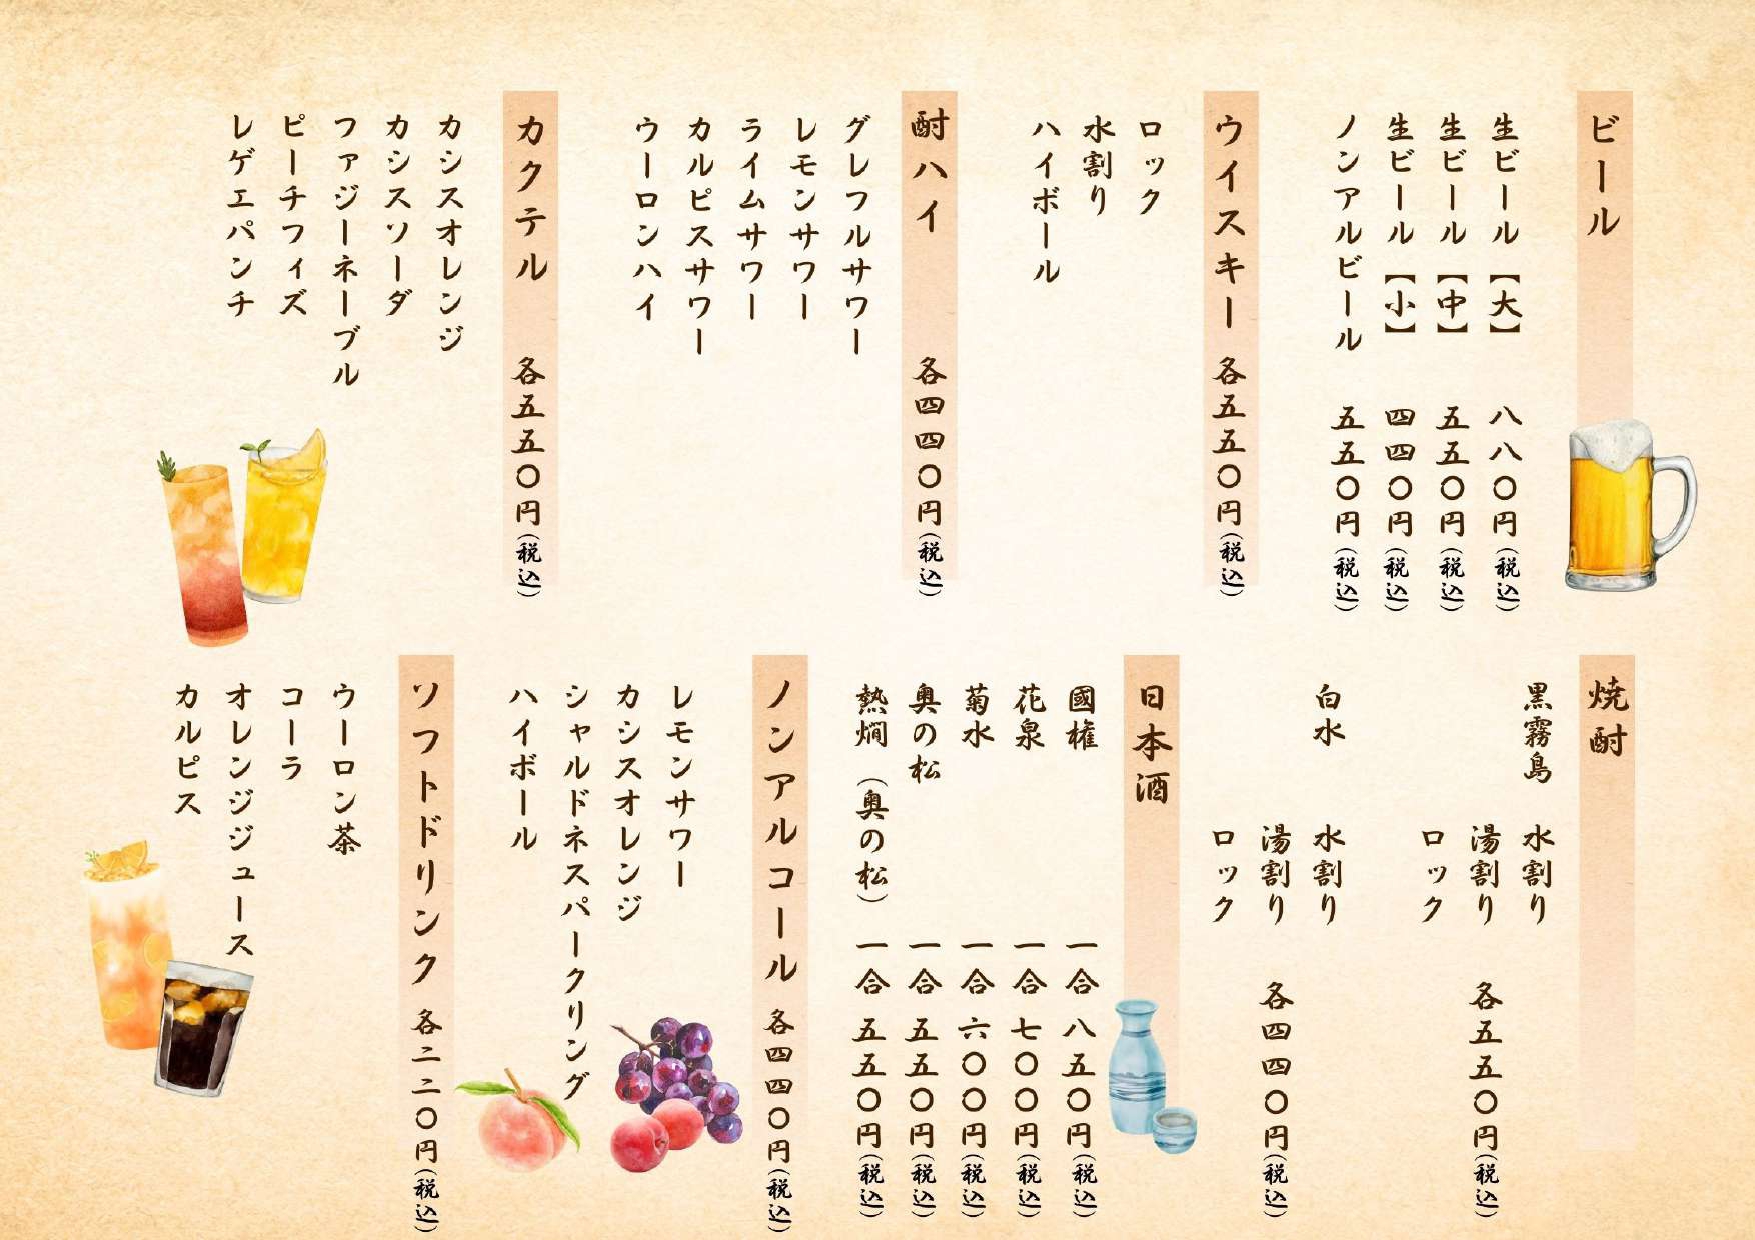 ビール
生ビール【大】 八八〇円(税込)
生ビール【中】 五五〇円(税込)
生ビール【小】 四四〇円(税込)
ノンアルビール 五五〇円(税込)
ウイスキー 各五五〇円(税込)
ロック
水割り
ハイボール
酎ハイ 各四四〇円(税込)
グレフルサワー
レモンサワー
ライムサワー
カルピスサワー
ウーロンハイ
カクテル 各五五〇円(税込)
カシスオレンジ
カシスソーダ
ファジーネーブル
ピーチフィズ
レゲエパンチ
焼酎
黒霧島 水割り
湯割り 各五五〇円(税込)
ロック
白水 水割り
湯割り 各四四〇円(税込)
ロック
日本酒
國権 一合 八五〇円(税込)
花泉 一合 七〇〇円(税込)
菊水 一合 六〇〇円(税込)
奥の松 一合 五五〇円(税込)
熱燗(奥の松) 一合 五五〇円(税込)
ノンアルコール 各四四〇円(税込)
レモンサワー
カシスオレンジ
シャルドネスパークリング
ハイボール
ソフトドリンク 各二二〇円(税込)
ウーロン茶
コーラ
オレンジジュース
カルピス